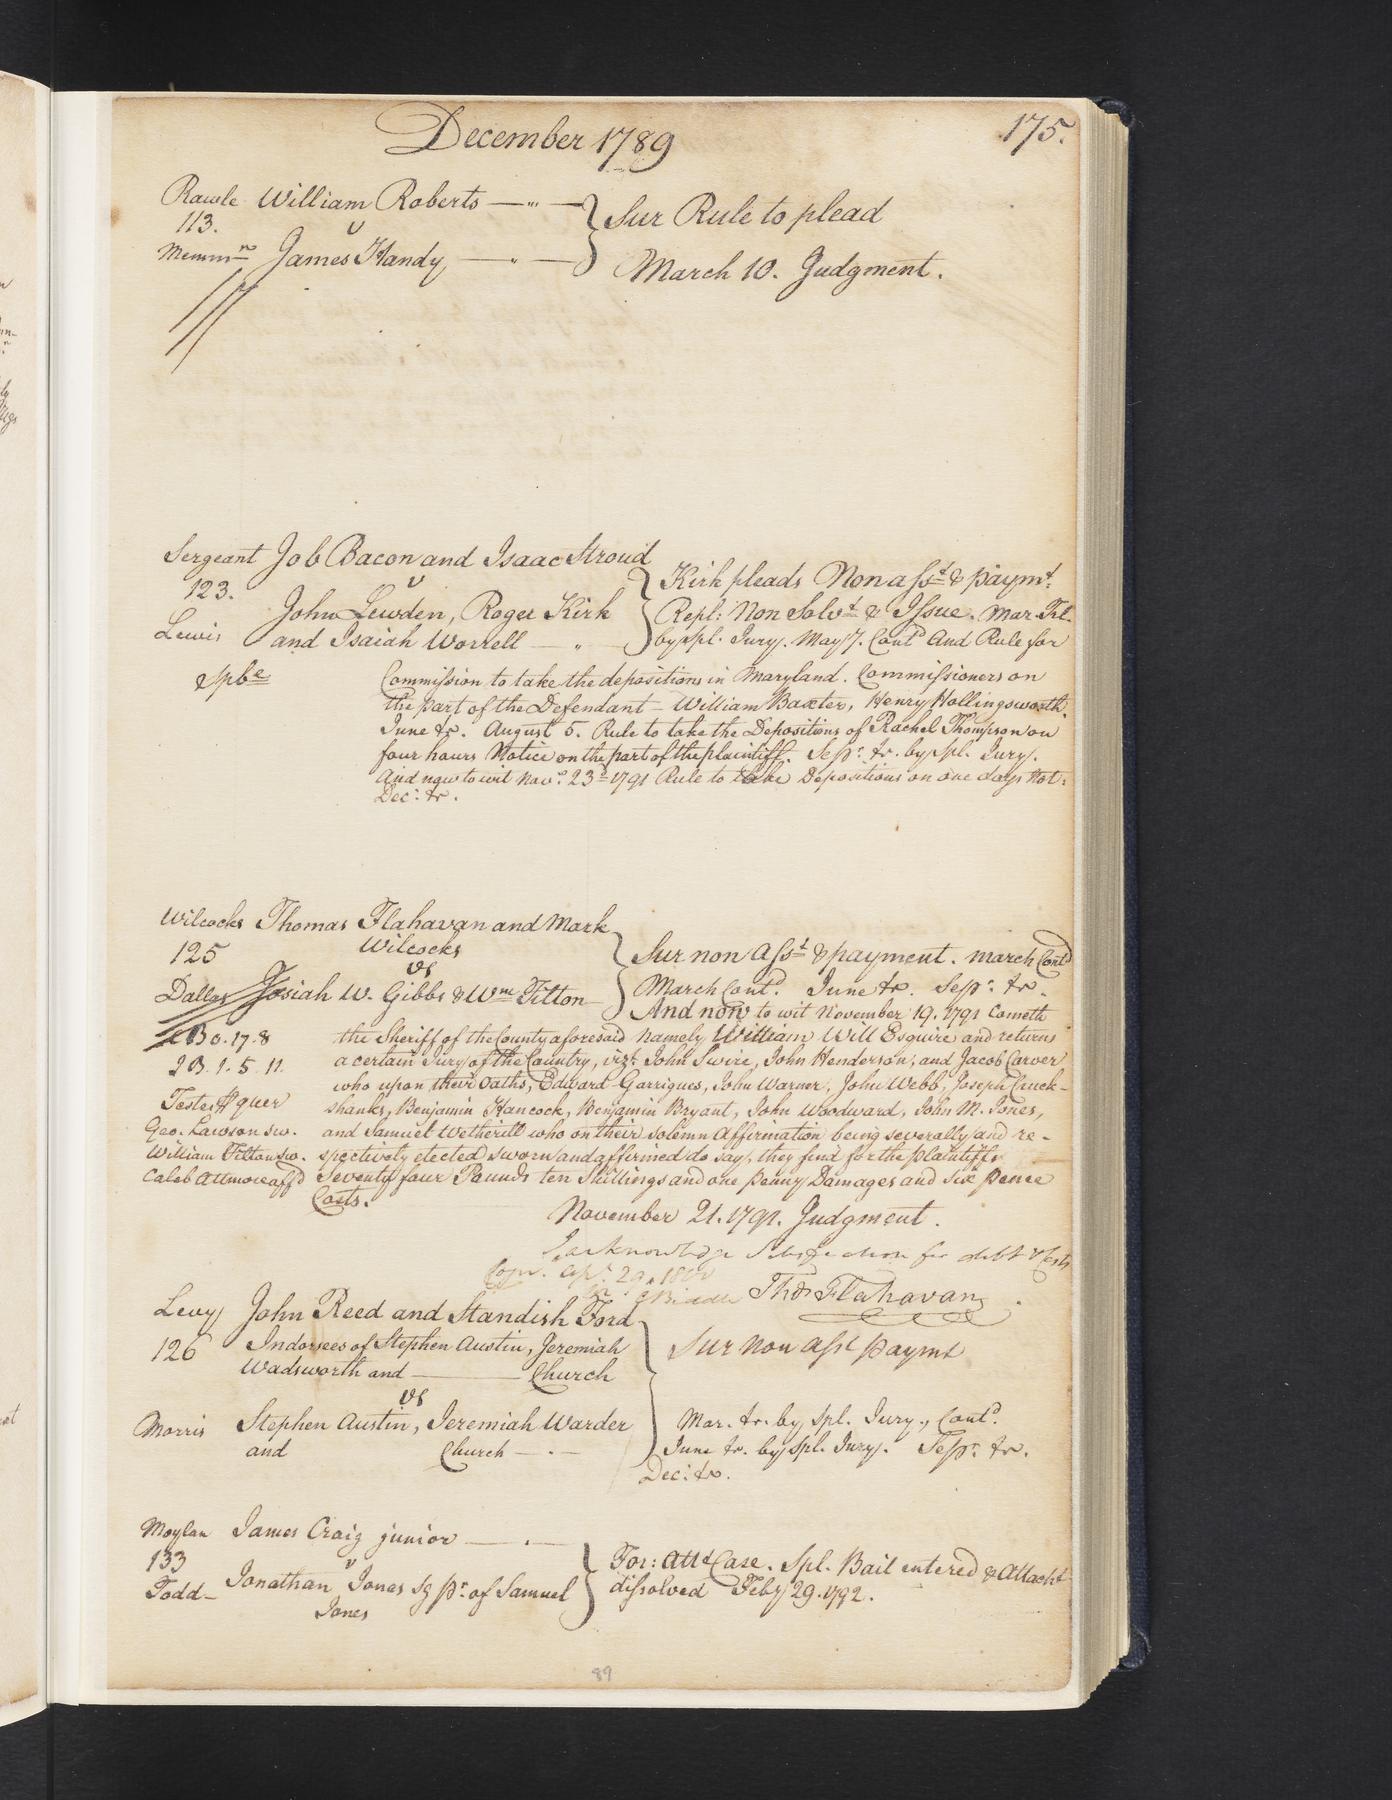 December 1789
175.
Rawle William Roberts — " —
113.
v
Sur Rule to plead
Memmn James Handy — " —
March 10. Judgment.
Sergeant Job Bacon and Isaac Stroud
123.
v
Kirk pleads Non asst & paymt.
John Lewden, Roger Kirk
Repl: Non Solvt & Issue. Mar. Trl.
Lewis and Isaiah Worrell — " —
by spl. Jury. May 7. Contd And Rule for
Commission to take the depositions in Maryland. Commissioners on
the part of the Defendant — William Baxter, Henry Hollingsworth.
June tr. August 5. Rule to take the Depositions of Rachel Thompson on
four hours Notice on the part of the plaintiff. Sepr. tr. by spl. Jury.
And now to wit Nov. 23d 1791 Rule to take Depositions on one days Not:
Dec: tr.
Wilcocks Thomas Flahavan and Mark
Wilcocks
125
vs
Sur non Asst & payment. March Contd
Dallas Josiah W. Gibbs & Wm Tilton
March Contd. June tr. Sepr. tr.
And now to wit November 19. 1791 Cometh
0.17.8 the Sheriff of the County aforesaid namely William Will Esquire and returns
2 B. 1. 5. 11. a certain Jury of the Country, vizt. John Swire, John Henderson, and Jacob Carver
who upon their Oaths, Edward Garrigues, John Warner, John Webb, Joseph Cruck-
Testes quer shanks, Benjamin Hancock, Benjamin Bryant, John Woodward, John M. Jones,
Geo. Lawson sw. and Samuel Wetherill who on their solemn Affirmation being severally and re-
William Tilton sw. spectively elected sworn and affirmed do say, they find for the plaintiffs
Caleb Attmore affd Seventy four Pounds ten Shillings and one penny Damages and six pence
Costs.
November 21. 1791. Judgment.
I acknowledge Satisfaction for debt & Costs
Apl. 29. 1800
Biddle Thos Flahavan
Levy John Reed and Standish Ford
126 Indorsees of Stephen Austin, Jeremiah
Wadsworth and — Church
Sur non asst paymt
vs
Morris Stephen Austin, Jeremiah Warder
and Church — . —
Mar. tr. by Spl. Jury., Contd.
June tr. by Spl. Jury. Sepr. tr.
Dec: tr.
Moylan James Craig junior — . —
133
v
Todd— Jonathan Jones sg pr. of Samuel
Jones
For: Attt Case. Spl. Bail entered & Attacht
dissolved Feby 29. 1792.
89